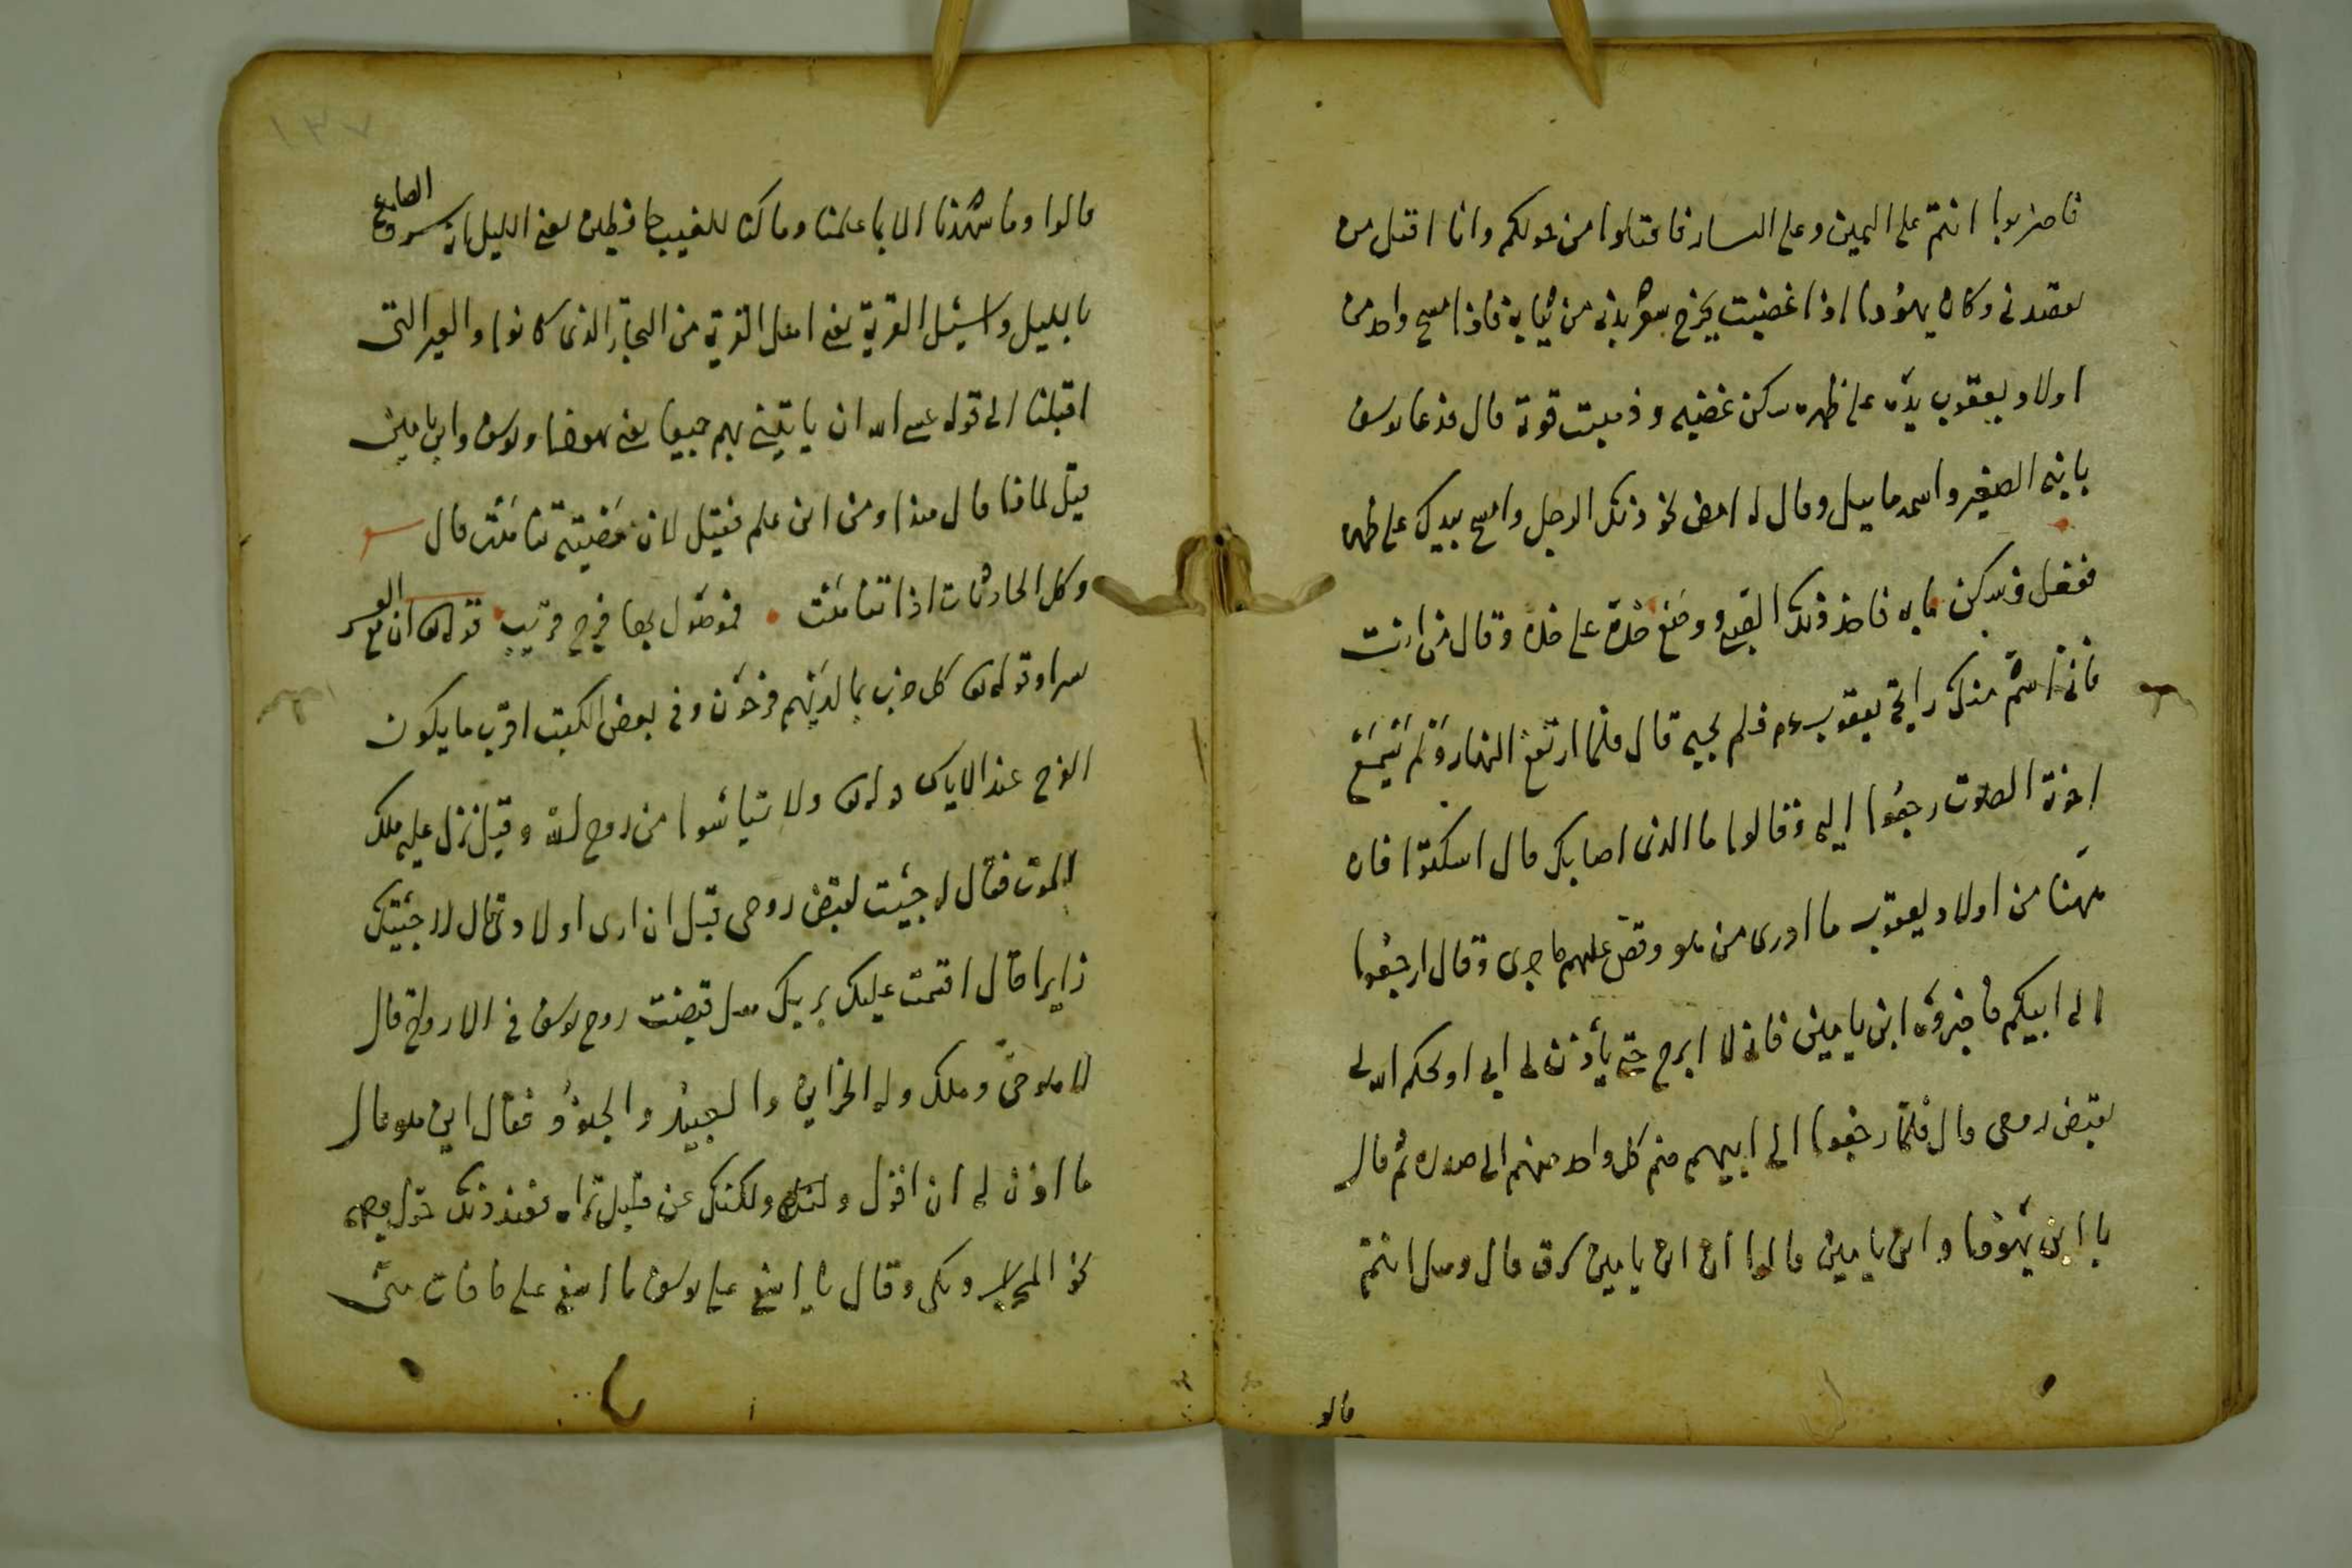 فاضربوا انتم على اليمين وعلى اليسار فاقتلوا من حولكم وانا اقتل من
يقصدنى وكان يهودا اذا غضبت يخرج شعر بدنه من ثيابه فاذا مسح واحد من
اولاد يعقوب يده على ظهره سكن غضبه وذهبت قوته قال فدعا يوسف
بابنه الصغير واسمه ماييل وقال له امض نحو ذلك الرجل وامسح بيدك على ظهره
ففعل فسكن ما به فاخذ ذلك الصبى ووضع خده على خده وقال من انت
فانى اشم منك رايحة يعقوب عم فلم يجبه قال فلما ارتفع النهار ولم يسمع
اخوة الصوت رجعوا اليه وقالوا ما الذى اصابك قال اسكتوا فان
ههنا من اولاد يعقوب ما ادرى من هو وقص عليهم ما جرى وقال ارجعوا
الى ابيكم فاخبروه ابن يامين فانى لا ابرح حتى يأذن لى ابى او يحكم الله لى
بقبض روحى قال فلما رجعوا الى ابيهم ضم كل واحد منهم الى صدره ثم قال
يا ابن يهودا وابن يامين قالوا ان ابن يامين سرق قال وهل انتم
قالو
١٣٧
قالوا وما شهدنا الا بما علمنا وما كنا للغيب حافظين يعنى الليل انه سرق الصاع
بالليل واسئل القرية يعنى اهل القرية من التجار الذى كانوا والعير التى
اقبلنا الى قوله عسى الله ان ياتينى بهم جميعا يعنى يهودا ويوسف وابن يامين
قيل لماذا قال هذا ومن اين علم فقيل لان قضيته تناهت قال
وكل الحادثات اذا تناهت فموصول بها فرج قريب قوله تع ان مع العسر
يسرا وقوله تع كل حزب بما لديهم فرحون وفى بعض الكتب اقرب ما يكون
الفرج عند الاياس قوله تع ولا تيأسوا من روح الله وقيل نزل عليه ملك
الموت فقال له جئت لقبض روحى قبل ان ارى اولادى قال لا جئتك
زايرا قال اقسمت عليك بربك هل قبضت روح يوسف فى الارواح قال
لا هو حى وملك وله الخزاين والعبيد والجنود فقال اين هو قال
ما اذن لى ان اقول ولكنك عن قليل تراه فعند ذلك حول وجهه
نحو المحراب وبكى وقال يا اسفى على يوسف يا اسفى على ما فات منى